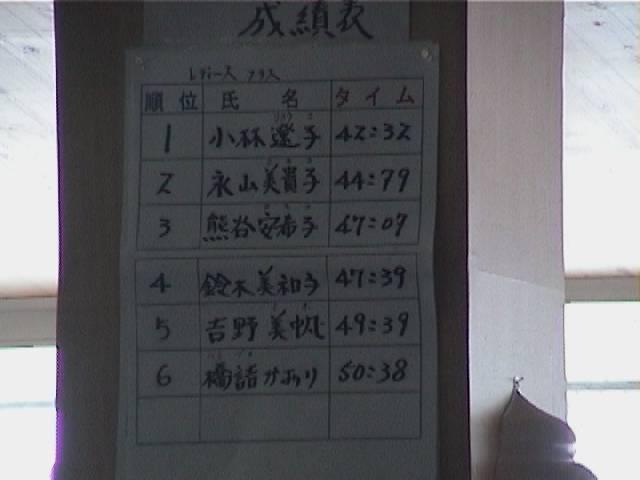 成績表
レディース クラス
順位 氏名 タイム
1 小林遼子 42:32
2 永山美貴子 44:79
3 熊谷安希子 47:07
4 鈴木美和子 47:39
5 吉野美帆 49:39
6 橋詰かおり 50:38